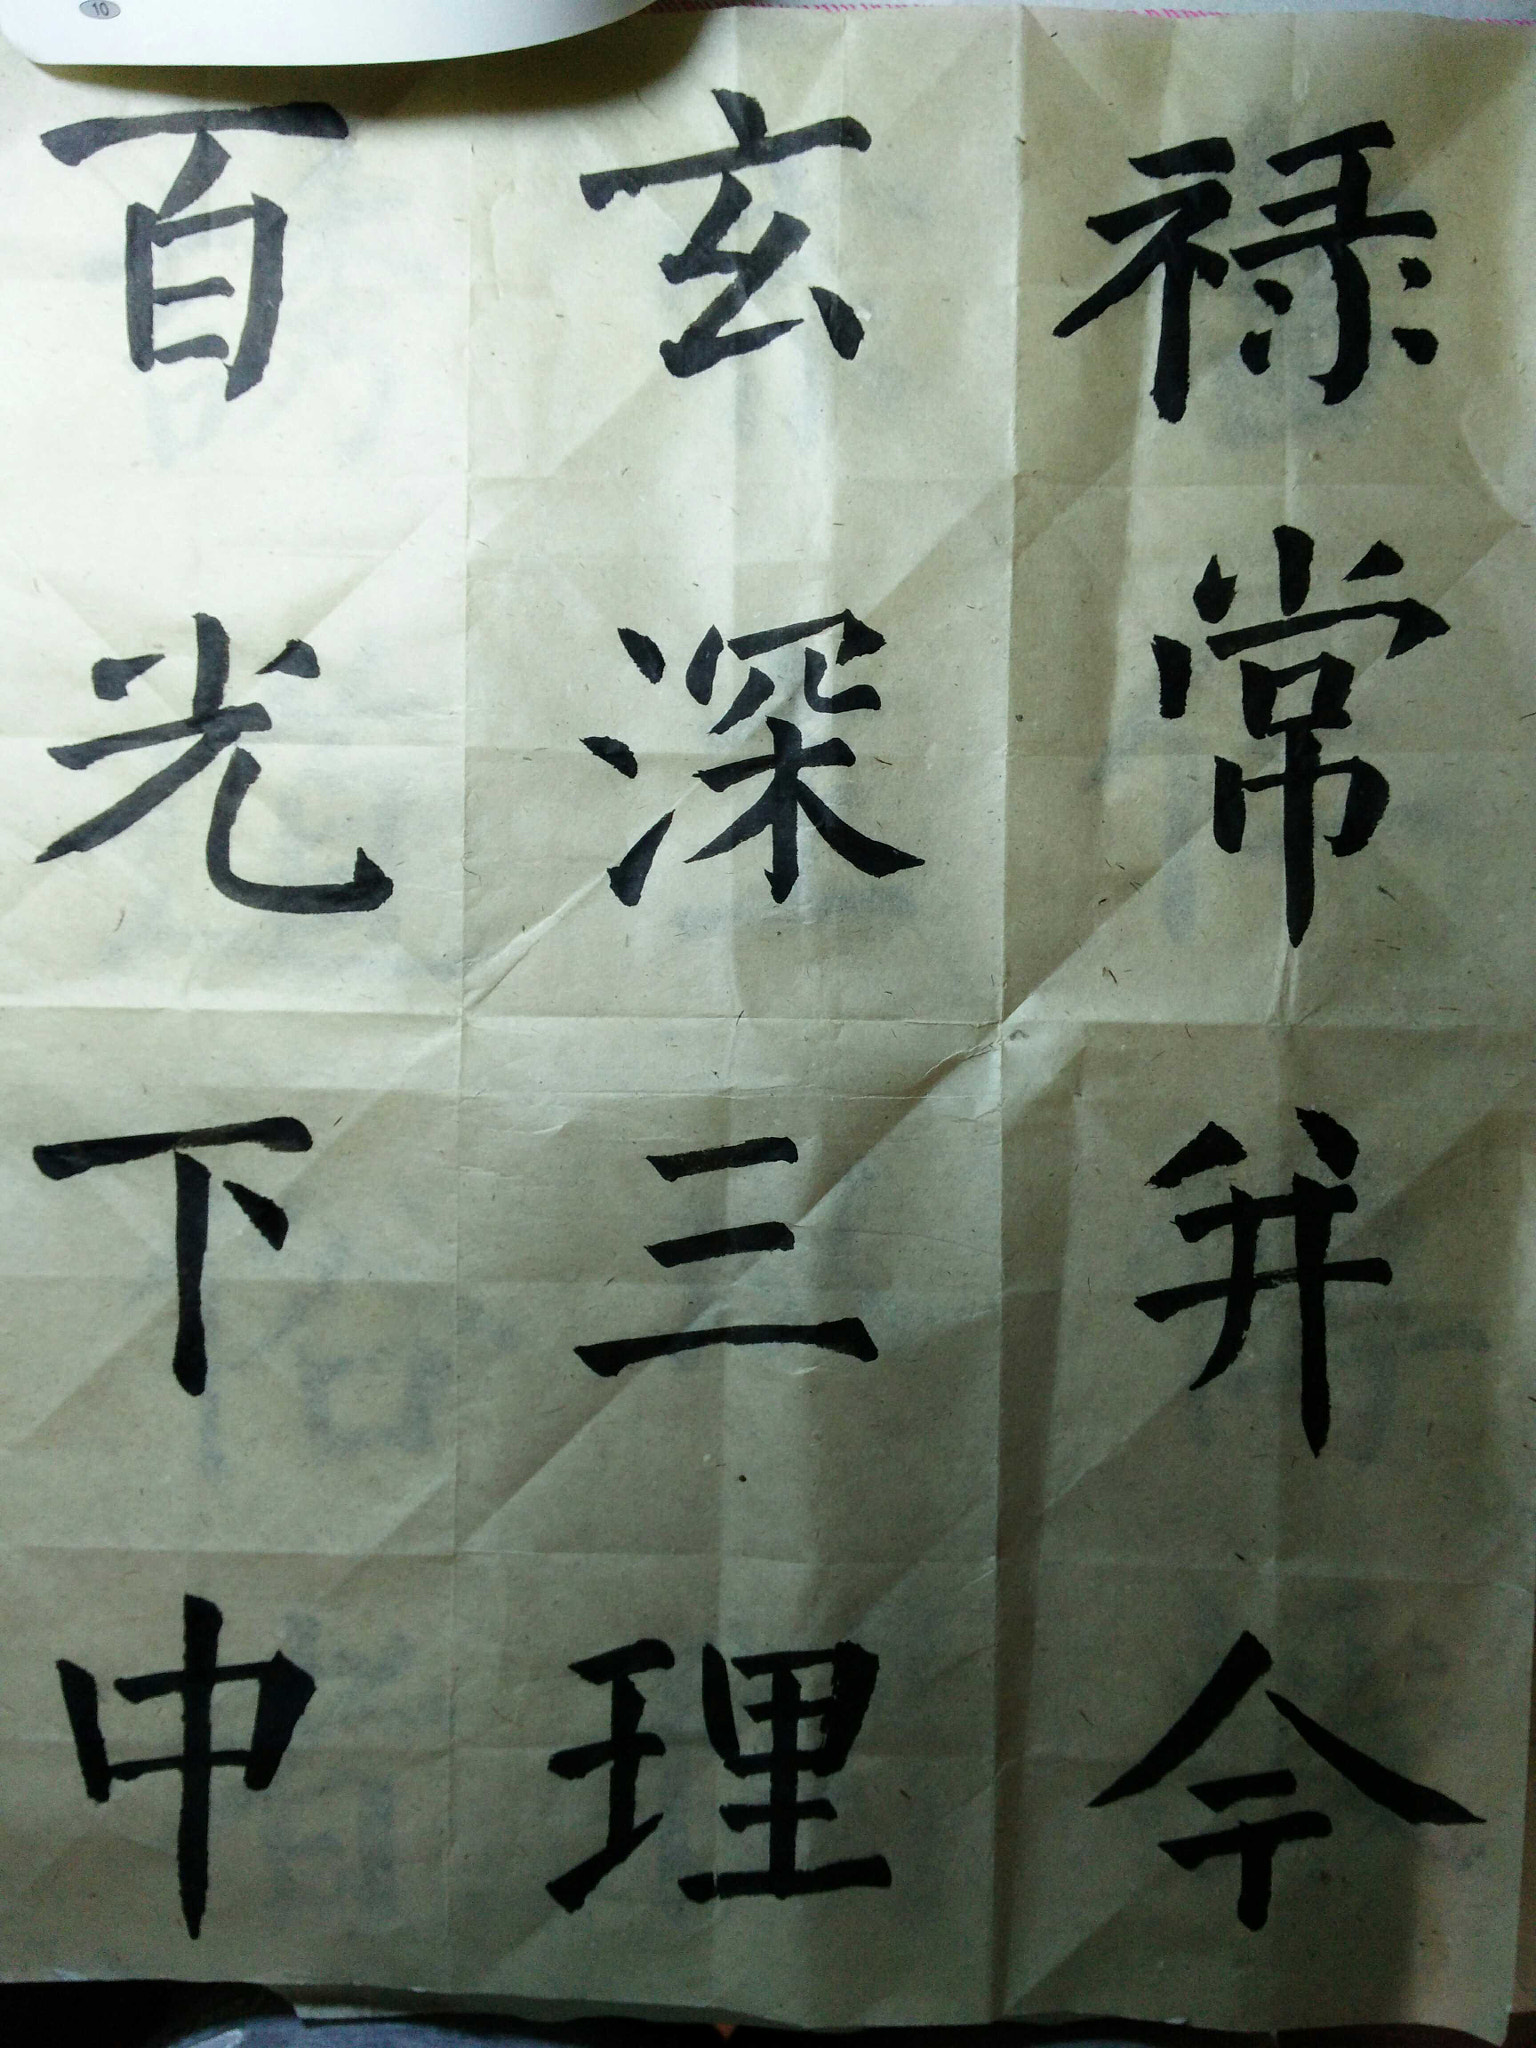 禄常并今
玄深三理
百光下中
10